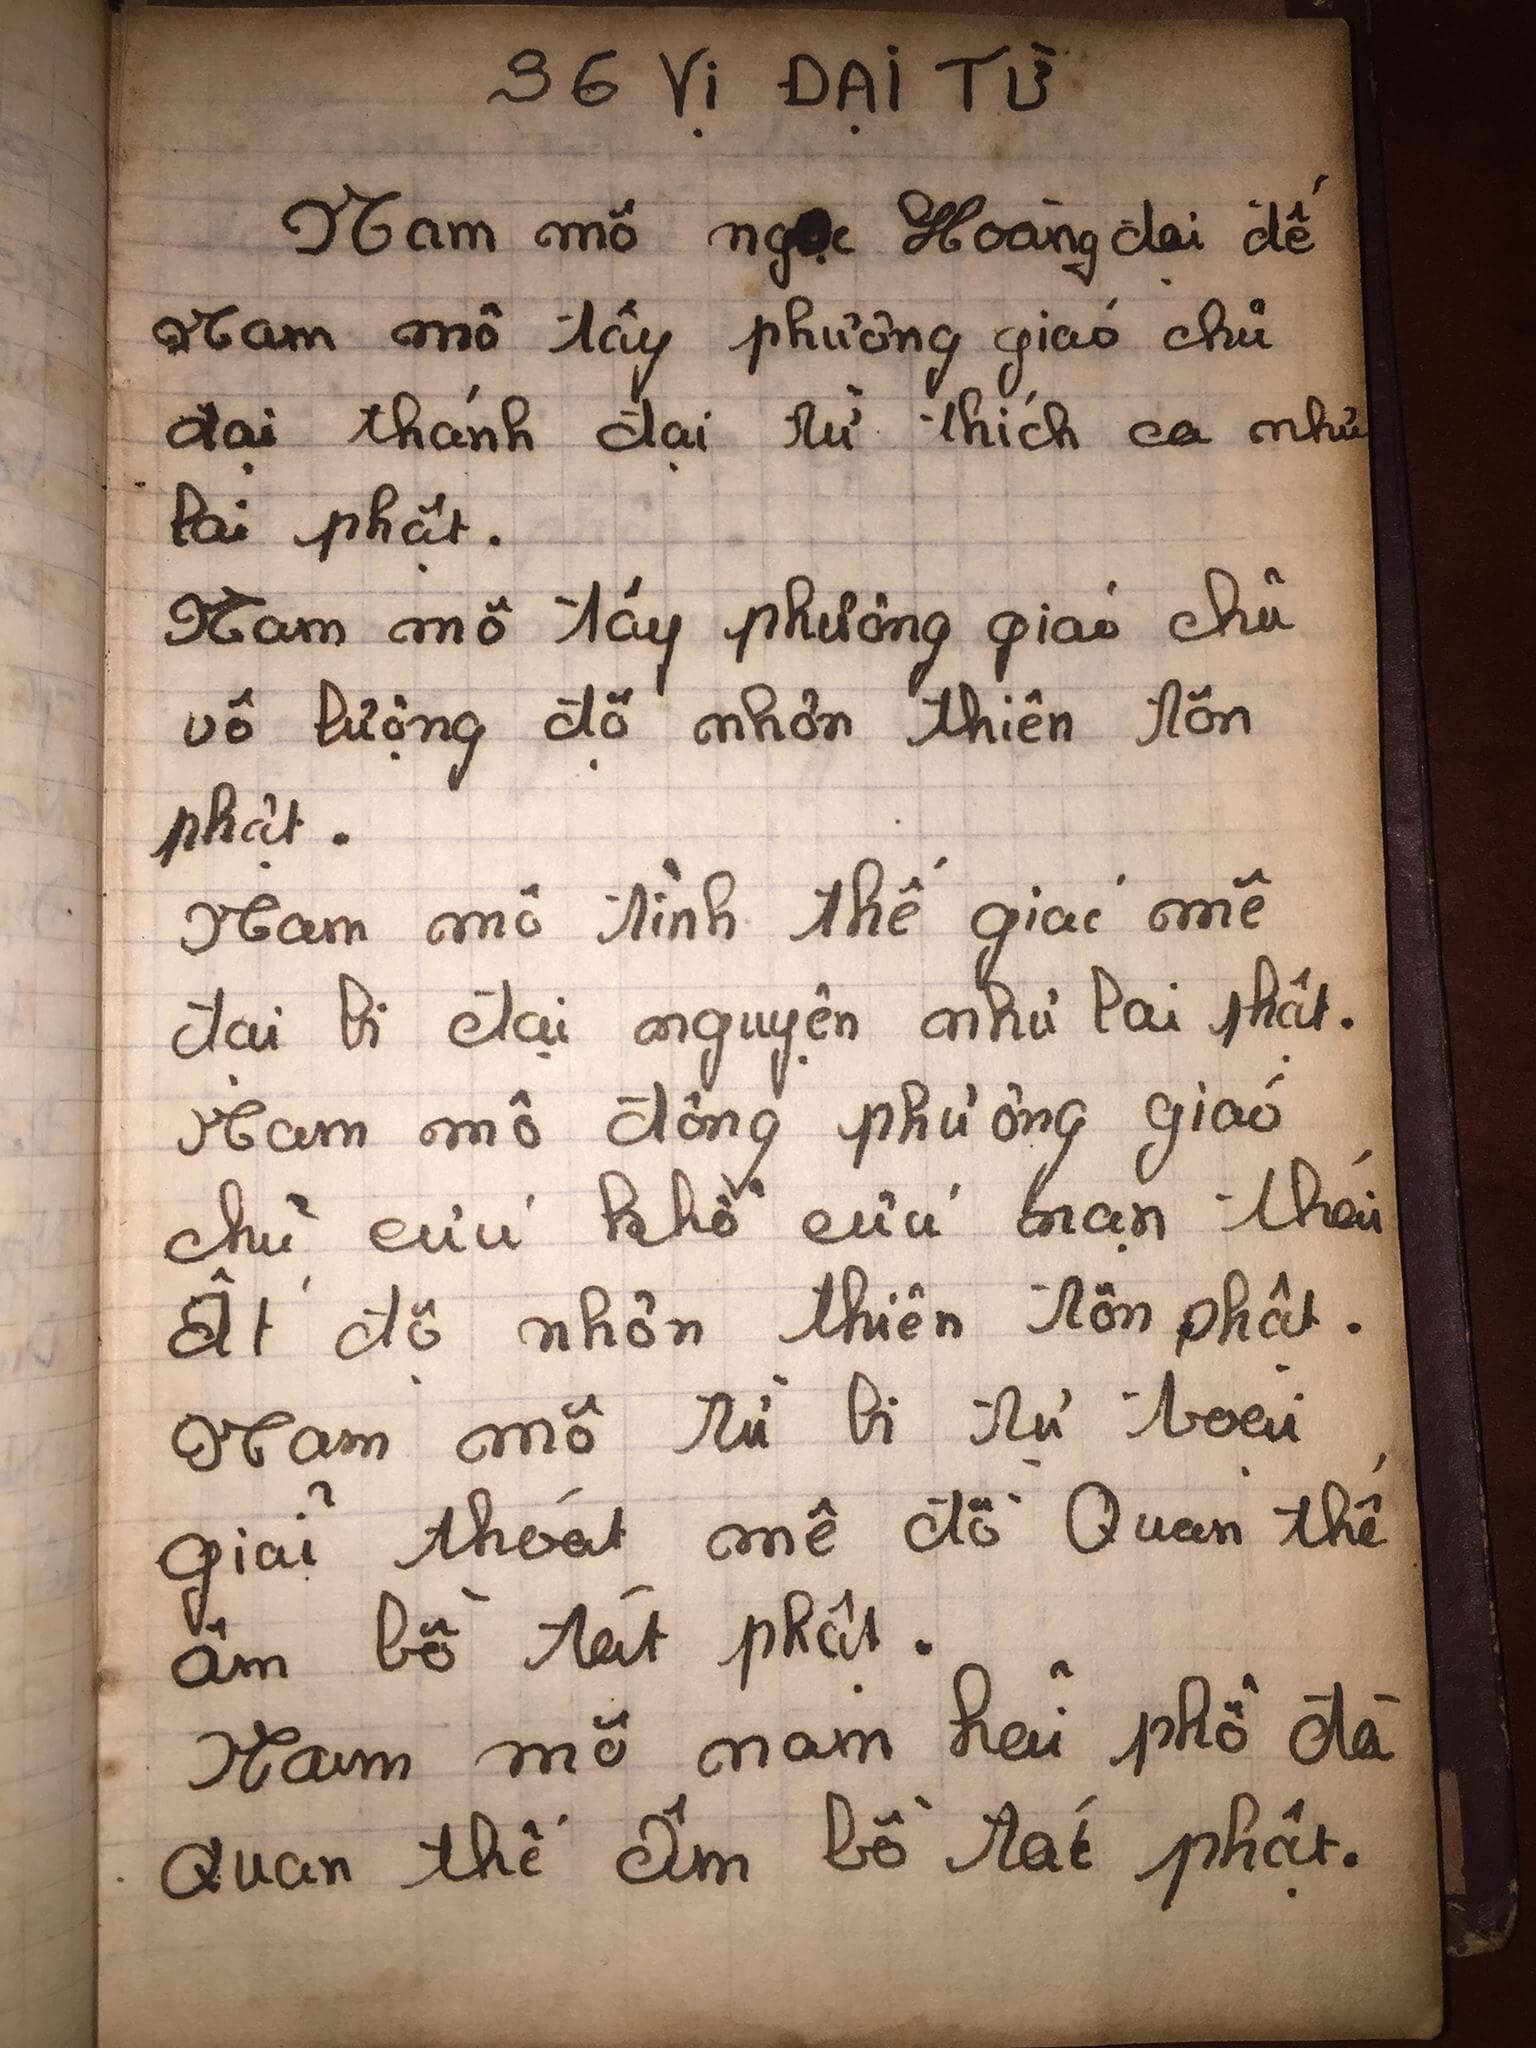 36 VỊ ĐẠI TỪ
Nam mô ngọc Hoàng đại đế
Nam mô tây phương giáo chủ
đại thánh đại từ thích ca như
lai phật.
Nam mô tây phương giáo chủ
vô lượng độ nhơn thiên tôn
phật.
Nam mô tình thế giác mê
đại bi đại nguyện như lai phật.
Nam mô đông phương giáo
chủ cứu khổ cứu nạn thái
Ất độ nhơn thiên tôn phật.
Nam mô từ bi tự toại
giải thoát mê đồ Quan thế
âm bồ tát phật.
Nam mô nam hải phổ đà
Quan thế Âm bồ tát phật.